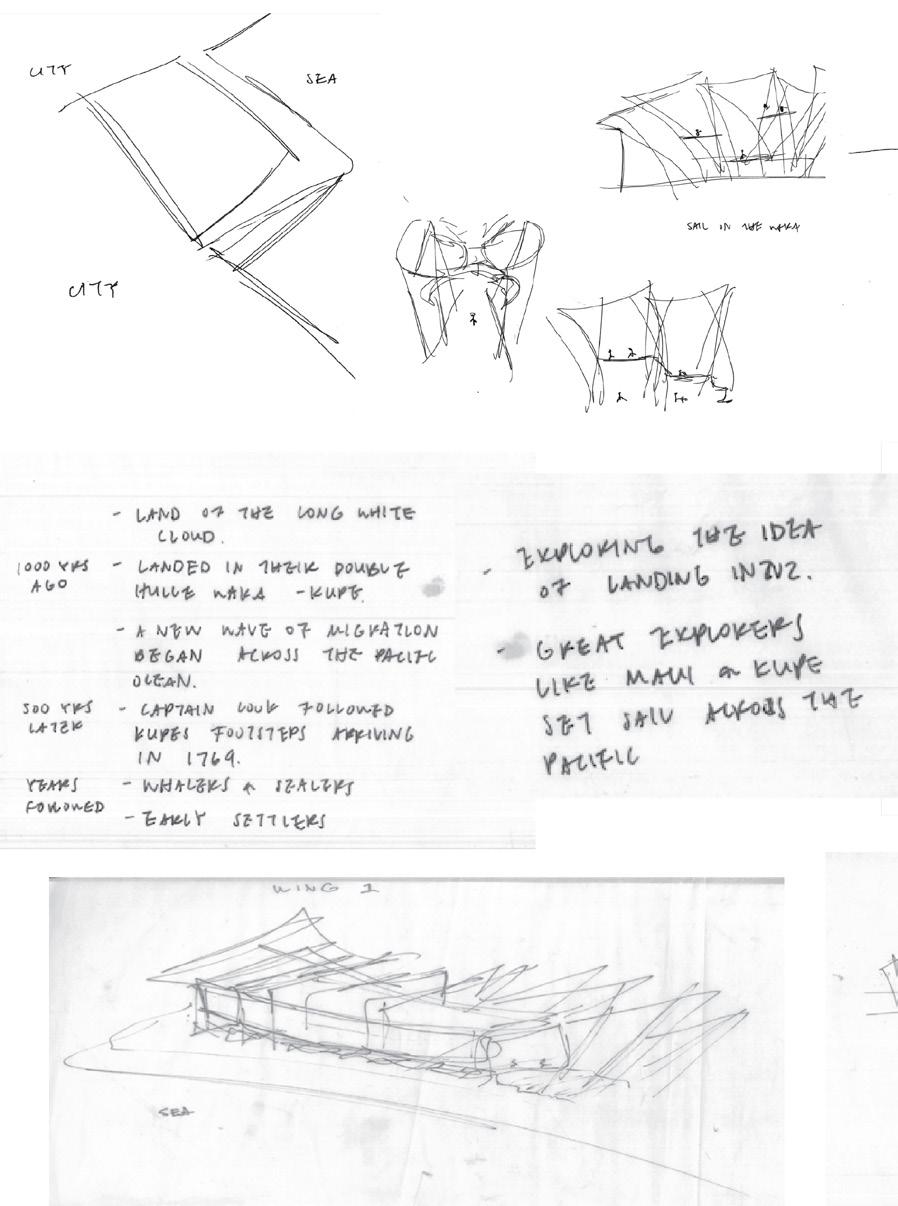 CITY
SEA
SAIL IN THE WAKA
CITY
- LAND OF THE LONG WHITE
CLOUD.
1000 YRS
AGO
- LANDED IN THEIR DOUBLE
HULLE WAKA - KUPE.
- A NEW WAVE OF MIGRATION
BEGAN ACROSS THE PACIFIC
OCEAN.
500 YRS
LATER
- CAPTAIN COOK FOLLOWED
KUPES FOOTSTEPS ARRIVING
IN 1769.
YEARS
FOLLOWED
- WHALERS & SEALERS
- EARLY SETTLERS
- EXPLORING THE IDEA
OF LANDING IN NZ.
- GREAT EXPLORERS
LIKE MAUI & KUPE
SET SAIL ACROSS THE
PACIFIC
WING 1
SEA